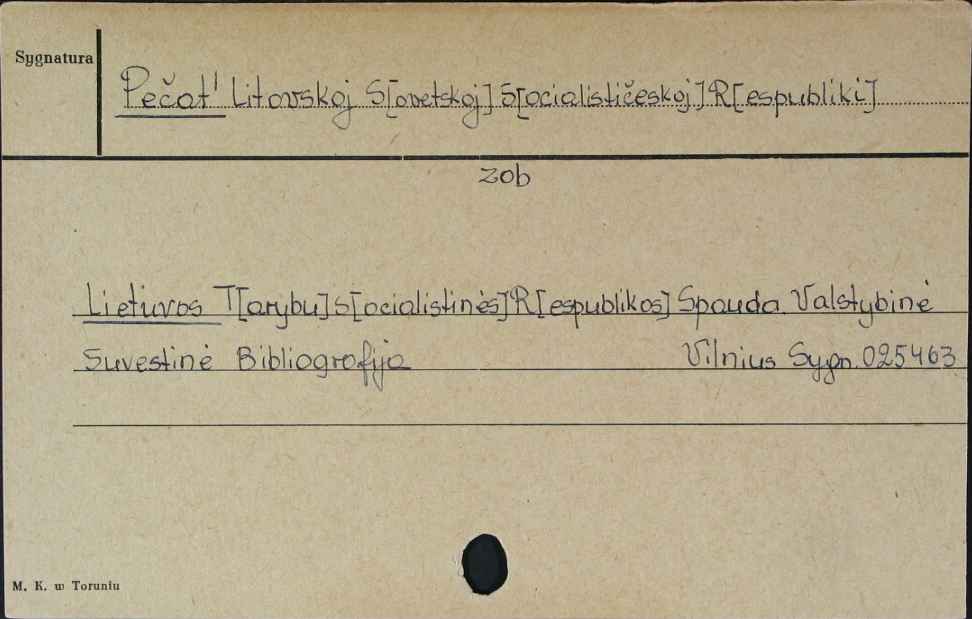 Sygnatura
Pečat' Litovskoj S[ovetskoj] S[ocialističeskoj] R[espubliki]
zob
Lietuvos T[arybu] S[ocialistinės] R[espublikos] Spauda. Valstybinė
Suvestinė Bibliografija Vilnius Sygn. 025463
M. K. w Toruniu